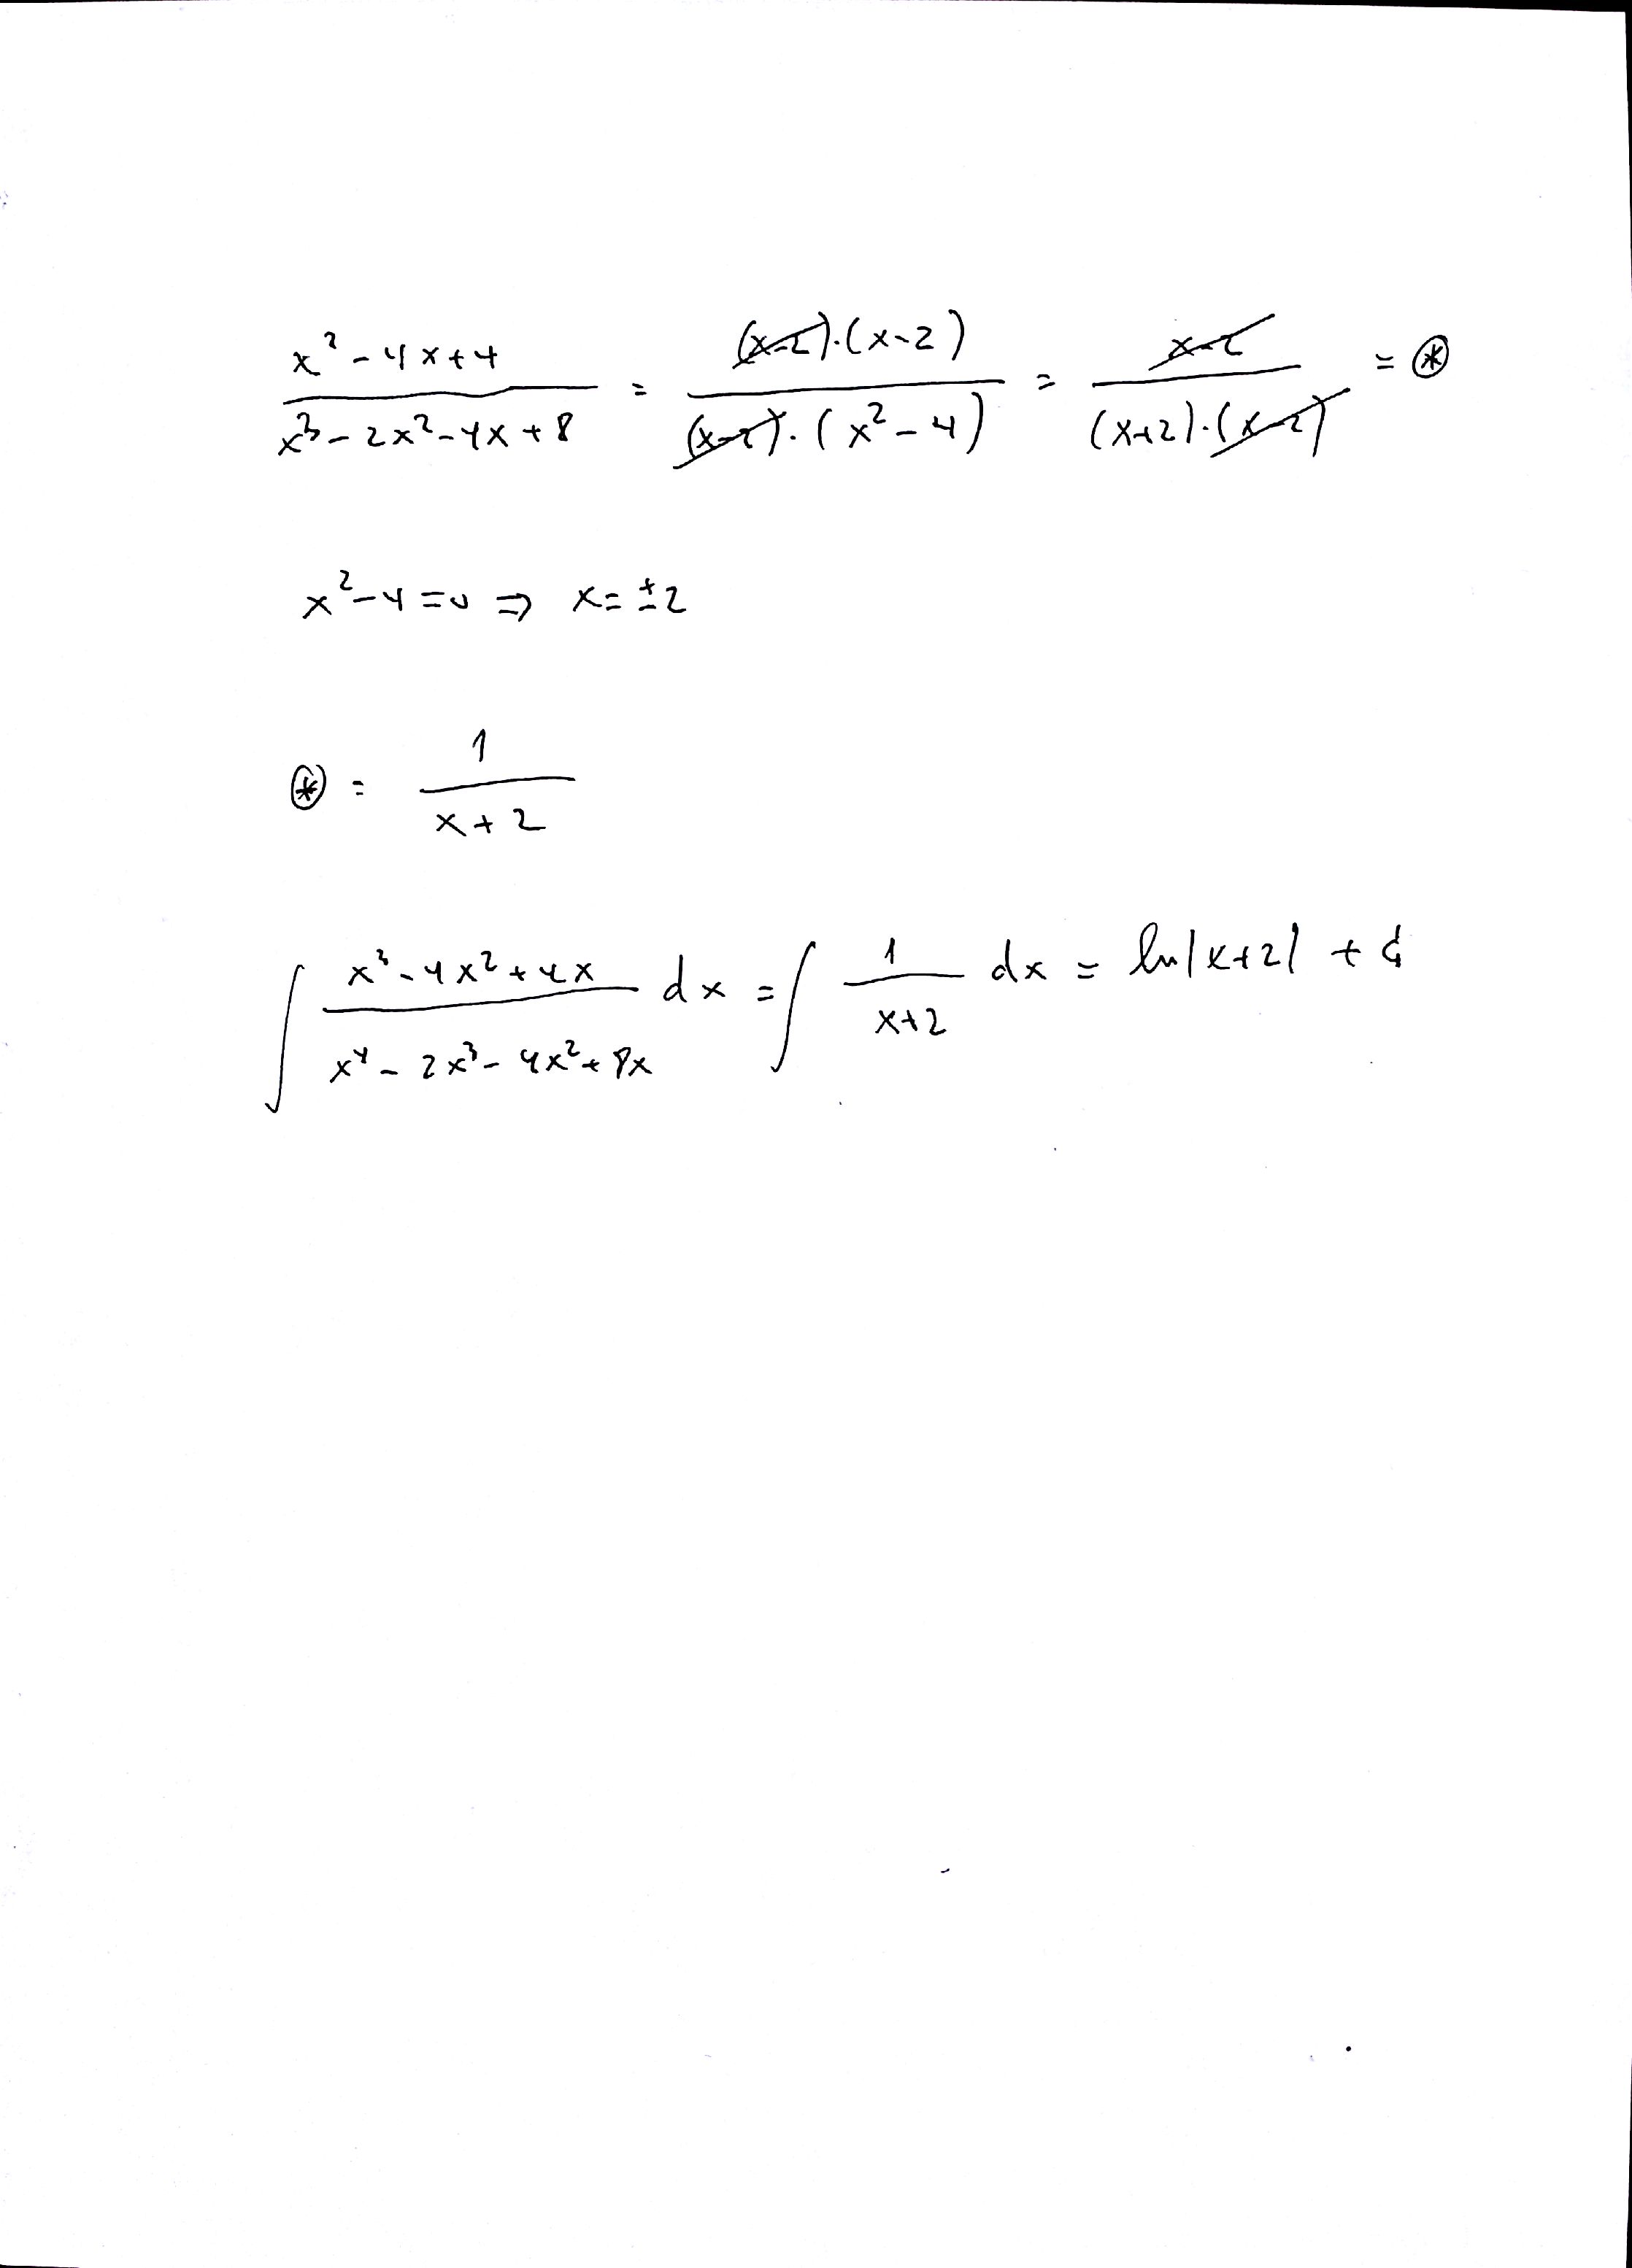 (x² - 4x + 4)/(x³ - 2x² - 4x + 8) = ((x-2)·(x-2))/((x-2)·(x² - 4)) = (x-2)/((x+2)·(x-2)) = ⊛
x² - 4 = 0 ⇒ x = ±2
⊛ = 1/(x + 2)
∫ (x³ - 4x² + 4x)/(x⁴ - 2x³ - 4x² + 8x) dx = ∫ 1/(x+2) dx = ln|x+2| + C